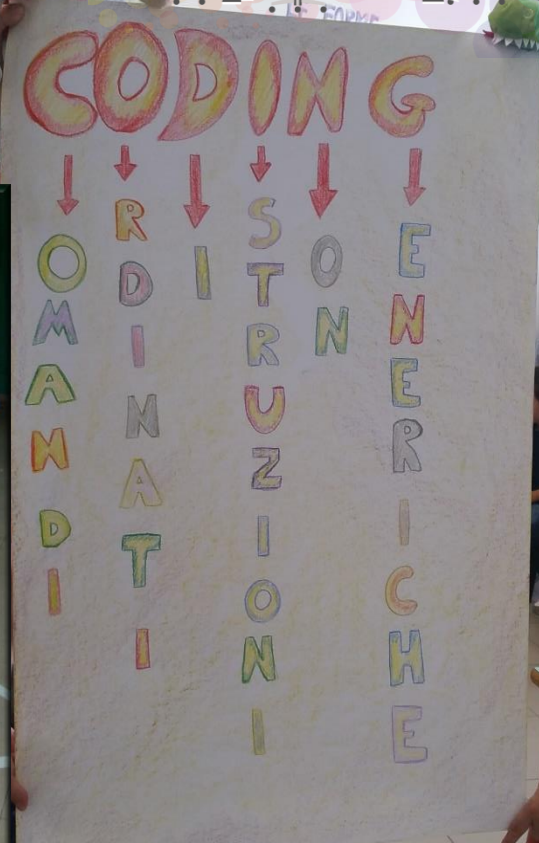 CODING
OMANDI
RDINATI
I
STRUZIONI
ON
ENERICHE